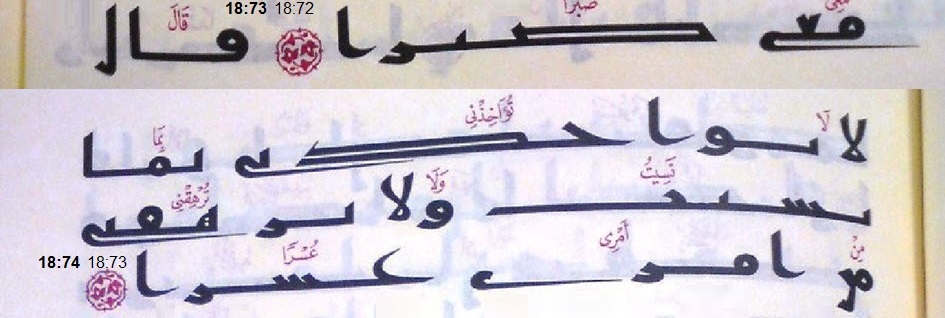 18:73 18:72
مَعِيَ صَبْرًا قَالَ
معى صبرا قال
لَا تُؤَاخِذْنِي بِمَا
لا تواخذنى بما
نَسِيتُ وَلَا تُرْهِقْنِي
نسيت ولا ترهقنى
مِنْ أَمْرِى عُسْرًا
من امرى عسرا
18:74 18:73